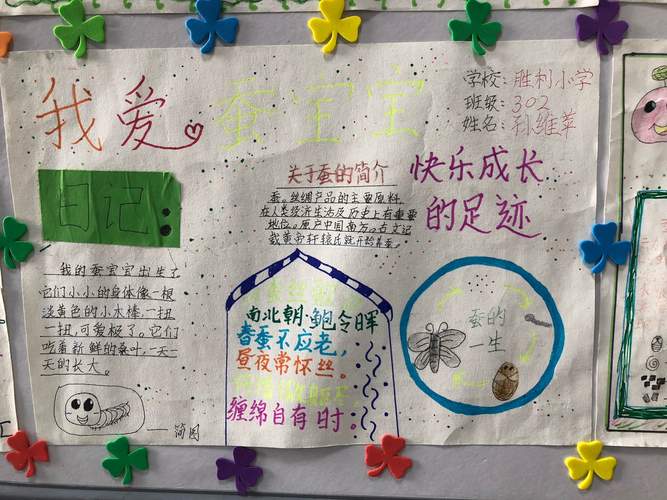 我爱蚕宝宝
学校：胜利小学
班级：302
姓名：孙维苹
日记：
我的蚕宝宝出生了
它们小小的身体像一根
淡黄色的小水棒，一扭
一扭，可爱极了。它们
吃着新鲜的桑叶，一天一
天的长大。
——简图
关于蚕的简介
蚕。丝绸产品的主要原料，
在人类经济生活及历史上有重要
地位。原产中国南方。古文记
载黄帝轩辕氏就开始养蚕。
快乐成长
的足迹
南北朝·鲍令晖
春蚕不应老，
昼夜常怀丝。
缠绵自有时。
蚕的
一生